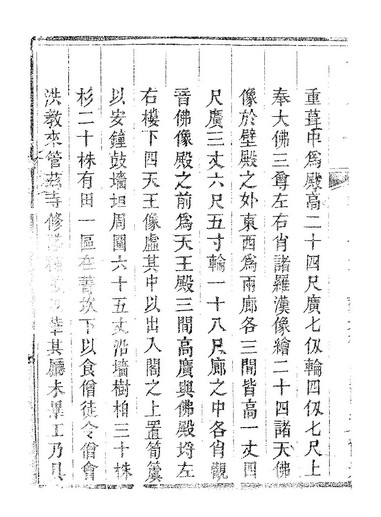 重葺中爲殿高二十四尺廣七仭輪四仭七尺上
奉大佛三尊左右肖諸羅漢像繪二十四諸天佛
像於壁殿之外東西爲兩廊各三間皆高一丈四
尺廣三丈六尺五寸輪一十八尺廊之中各肖觀
音佛像殿之前爲天王殿三間高廣與佛殿埒左
右樓下四天王像虛其中以出入閣之上置筍簴
以安鐘鼓墻垣周圍六十五丈沿墻樹柏三十株
杉二十株有田一區在菁坎下以食僧徒令僧會
洪教來管茲寺修其廳未畢工乃具